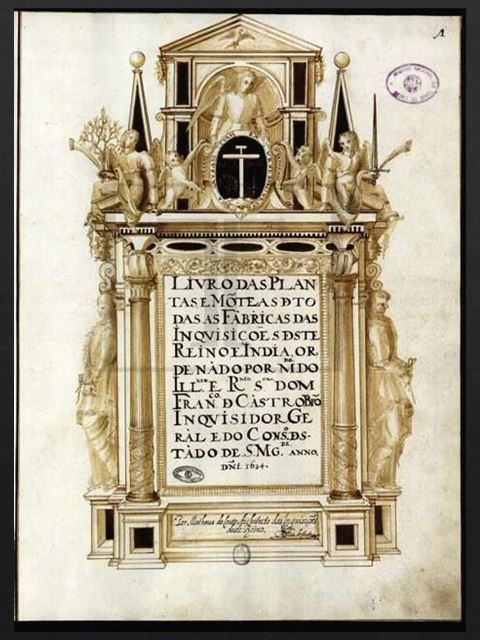 A
LIVRO DAS PLAN
TAS E MÕTEAS D TO
DAS AS FÀBRICAS DAS
INQVISIÇOẼS DSTE
REINO E INDIA, OR,
DENÀDO POR MDO
ILL.mo E Rmo Sor DOM
FRAN.co D CÀSTRO BPO
INQVISIDOR GE
RAL E DO CONSo. DS-
TÀDO DE S. MGDE. ANNO,
DÑI. 1634.
Por Matheus do Couto Architecto das Inquisições
deste Reino.